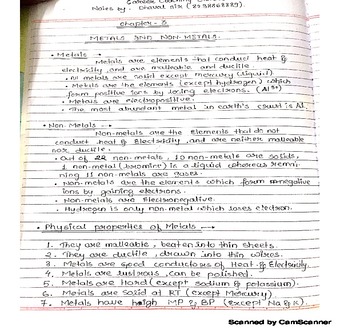 Notes by - Dhaval sir
Chapter - 3
METALS AND NON-METALS.
• Metals →
Metals are elements that conduct heat &
electricity and are malleable and ductile
• All metals are solid except mercury (liquid)
• Metals are the elements (except Hydrogen) which
form positive ions by losing electrons. (Al³⁺)
• Metals are electropositive.
• The most abundant metal in earth's crust is Al.
• Non-Metals →
Non-metals are the elements that do not
conduct heat & Electricity, and are neither malleable
nor ductile.
• Out of 22 non-metals, 10 non-metals are solids,
1 non-metal (bromine) is a liquid whereas remai-
ning 11 non-metals are gases.
• Non-metals are the elements which form negative
ions by gaining electrons.
• Non-metals are Electronegative.
• Hydrogen is only non-metal which loses electron.
• Physical properties of Metals →
1. They are malleable, beaten into thin sheets.
2. They are ductile, drawn into thin wires.
3. Metals are good conductors of Heat & Electricity.
4. Metals are lustrous, can be polished.
5. Metals are Hard (except sodium & potassium).
6. Metals are solid at RT (except Mercury)
7. Metals have high MP & BP (except Na & K).
Scanned by CamScanner